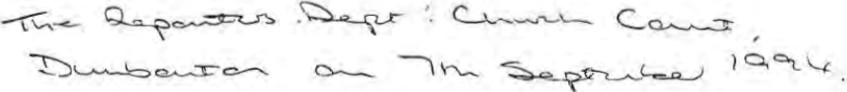 The Reporters Dept: Church Court,
Dumbarton on 7th September 1994.